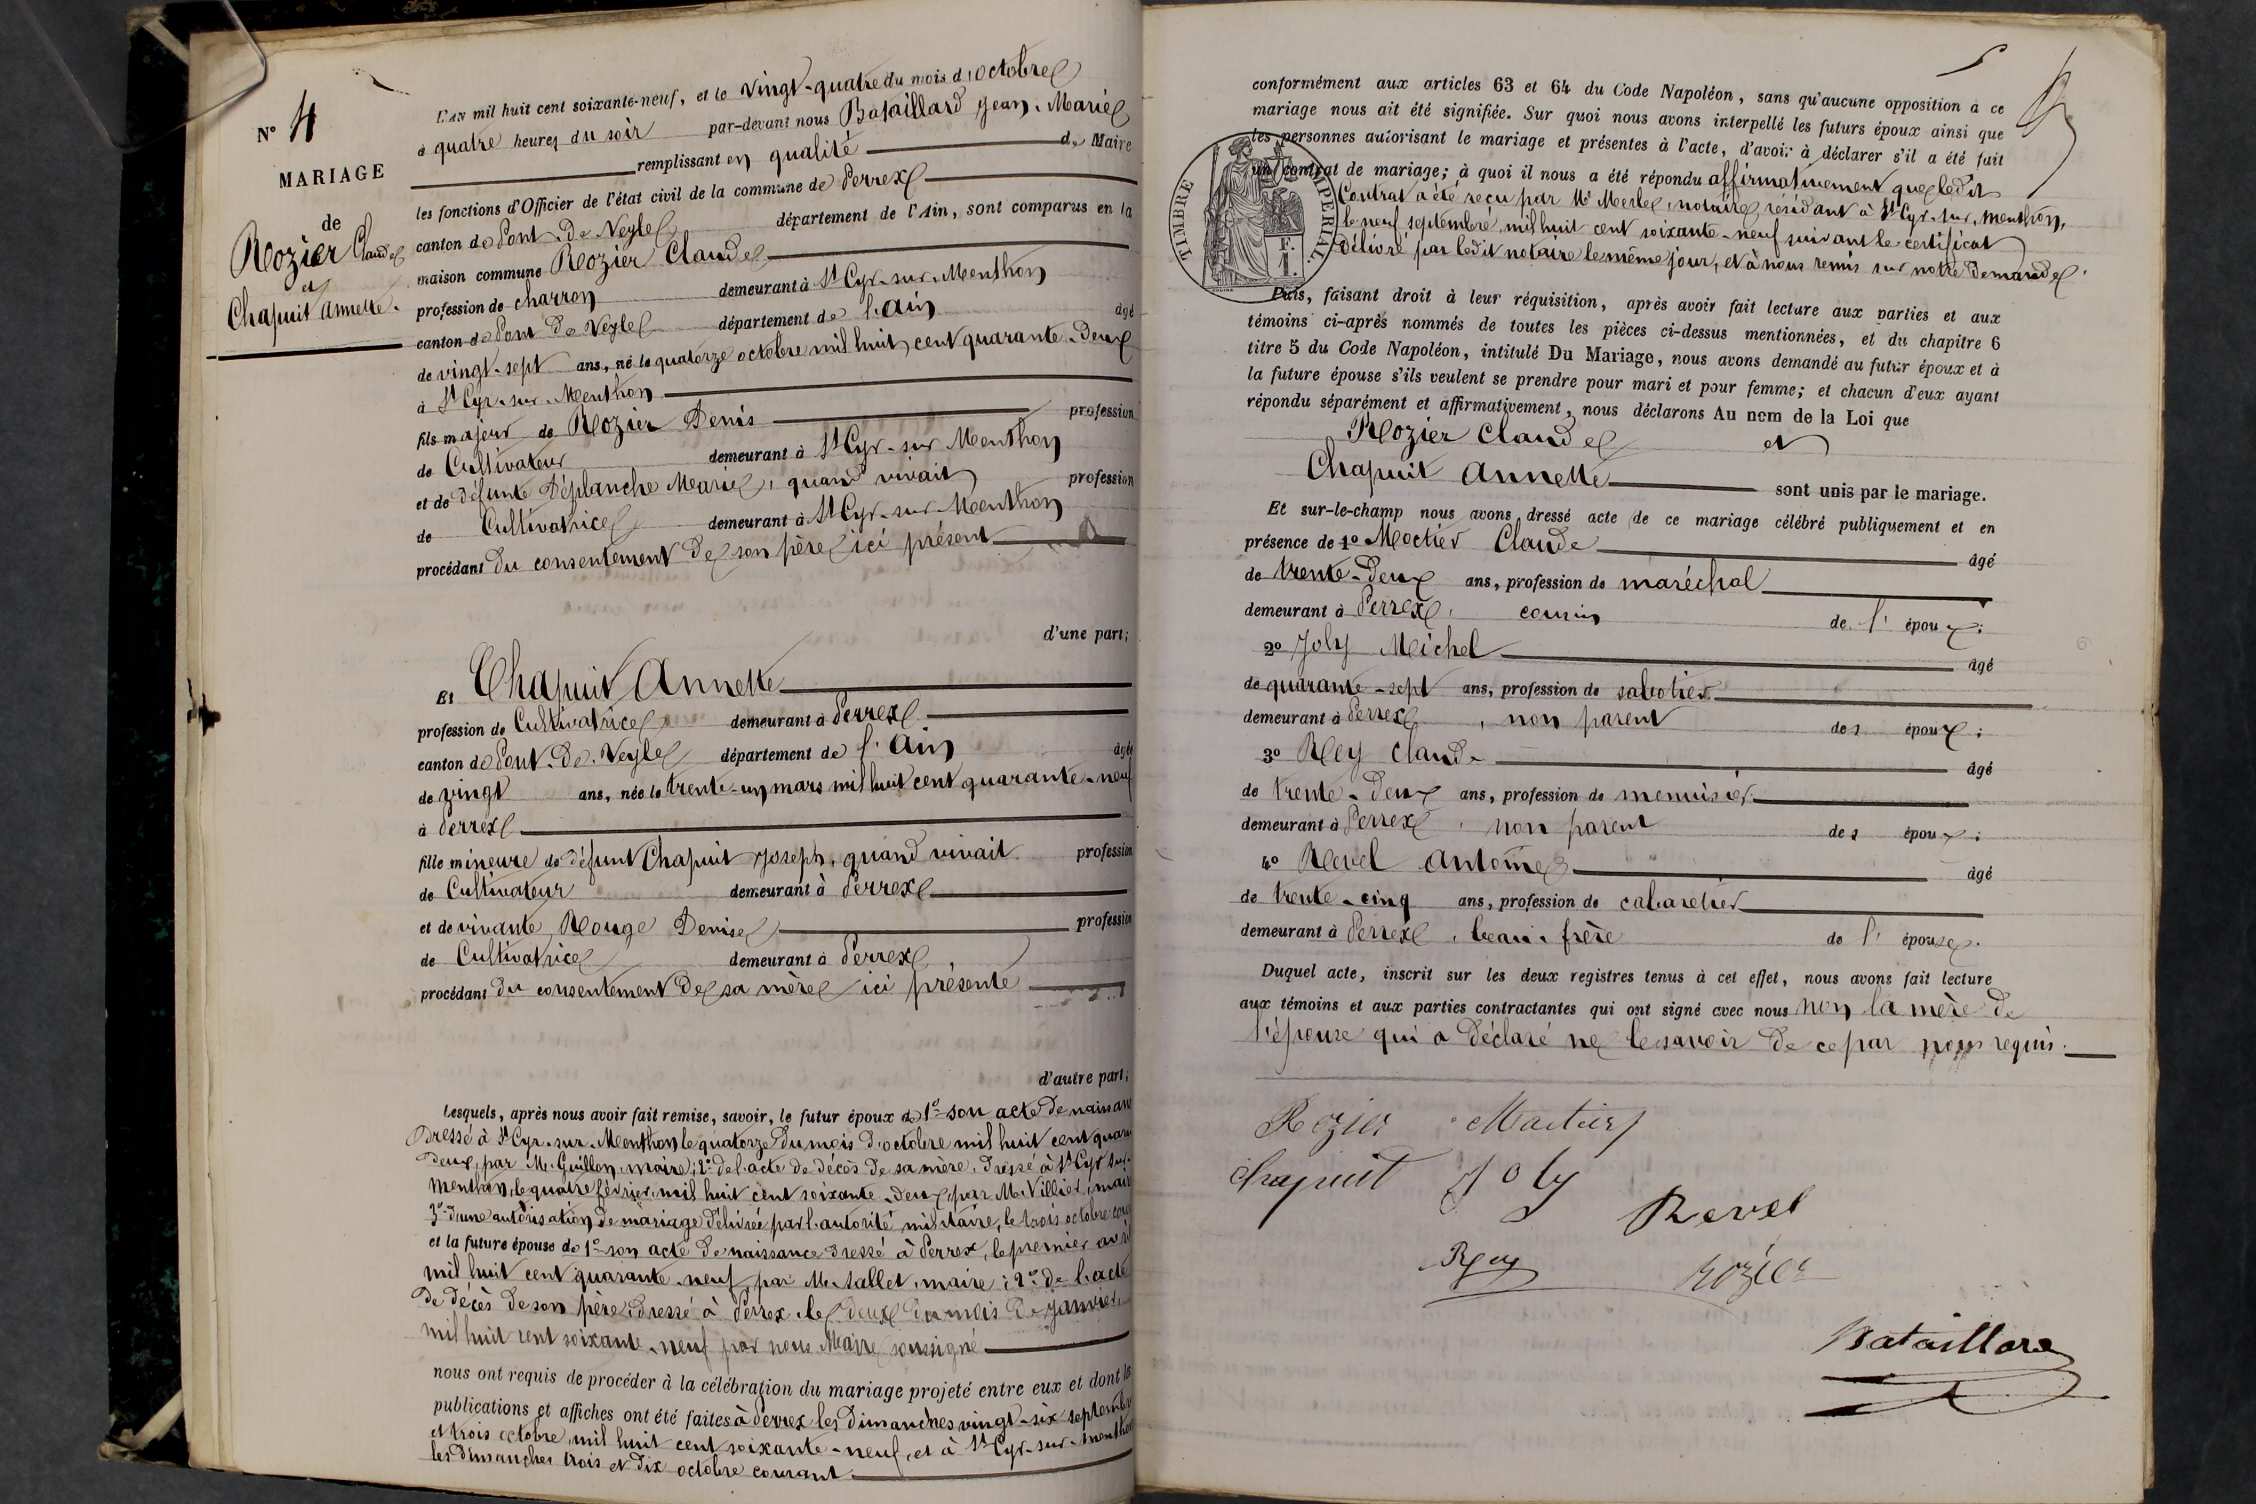 N° 4
MARIAGE
de
Rozier Claude
et
Chapuit Annette.
L'AN mil huit cent soixante-neuf, et le Vingt-quatre du mois d'Octobre
à quatre heures du soir par-devant nous Bataillard Jean-Marie
remplissant en qualité de Maire
les fonctions d'Officier de l'état civil de la commune de Perrex
canton de Pont-de-Veyle département de l'Ain, sont comparus en la
maison commune Rozier Claude
profession de charron demeurant à St Cyr-sur-Menthon
canton de Pont de Veyle département de l'Ain âgé
de vingt-sept ans, né le quatorze octobre mil huit cent quarante-deux
à St Cyr-sur-Menthon
fils majeur de Rozier Denis profession
de Cultivateur demeurant à St Cyr-sur Menthon
et de défunte Déplanche Marie, quand vivait profession
de Cultivatrice demeurant à St Cyr-sur-Menthon
procédant du consentement de son père ici présent
d'une part;
Et Chapuit Annette
profession de Cultivatrice demeurant à Perrex
canton de Pont-de-Veyle département de l'Ain âgée
de vingt ans, née le trente-un mars mil huit cent quarante-neuf
à Perrex
fille mineure de défunt Chapuit Joseph, quand vivait profession
de Cultivateur demeurant à Perrex
et de vivante Rouge Denise profession
de Cultivatrice demeurant à Perrex,
procédant du consentement de sa mère ici présente
d'autre part;
Lesquels, après nous avoir fait remise, savoir, le futur époux de 1° son acte de naissan
dressé à St Cyr-sur-Menthon le quatorze du mois d'octobre mil huit cent quaran
deux, par M. Guillon, maire; 2° de l'acte de décès de sa mère, dressé à St Cyr sur-
Menthon, le quatre février mil huit cent soixante-deux, par M. Villier, mair
3° d'une autorisation de mariage délivrée par l'autorité militaire, le trois octobre cour
et la future épouse de 1° son acte de naissance dressé à Perrex, le premier avril
mil huit cent quarante-neuf par M. Sallet, maire; 2° de l'acte
de décès de son père, dressé à Perrex le deux du mois de janvier
mil huit cent soixante-neuf par nous Maire soussigné
nous ont requis de procéder à la célébration du mariage projeté entre eux et dont les
publications et affiches ont été faites à Perrex les dimanches vingt-six septembre
et trois octobre mil huit cent soixante-neuf, et à St Cyr-sur-Menthon
les dimanches trois et dix octobre courant.
5
conformément aux articles 63 et 64 du Code Napoléon, sans qu'aucune opposition à ce
mariage nous ait été signifiée. Sur quoi nous avons interpellé les futurs époux ainsi que
les personnes autorisant le mariage et présentes à l'acte, d'avoir à déclarer s'il a été fait
un contrat de mariage; à quoi il nous a été répondu affirmativement que ledit
Contrat a été reçu par Me Merle, notaire, résidant à St Cyr-sur-Menthon,
le neuf septembre mil huit cent soixante-neuf suivant le certificat
délivré par ledit notaire le même jour, et à nous remis sur notre demande.
TIMBRE IMPERIAL
F. I.
Puis, faisant droit à leur réquisition, après avoir fait lecture aux parties et aux
témoins ci-après nommés de toutes les pièces ci-dessus mentionnées, et du chapitre 6
titre 5 du Code Napoléon, intitulé Du Mariage, nous avons demandé au futur époux et à
la future épouse s'ils veulent se prendre pour mari et pour femme; et chacun d'eux ayant
répondu séparément et affirmativement, nous déclarons Au nom de la Loi que
Rozier Claude et
Chapuit Annette sont unis par le mariage.
Et sur-le-champ nous avons dressé acte de ce mariage célébré publiquement et en
présence de 1° Moctier Claude âgé
de trente-deux ans, profession de maréchal
demeurant à Perrex, cousin de l'époux;
2° Joly Michel âgé
de quarante-sept ans, profession de sabotier
demeurant à Perrex, non parent des époux;
3° Rey Claude âgé
de trente-deux ans, profession de menuisier
demeurant à Perrex, non parent des époux;
4° Revel Antoine âgé
de trente-cinq ans, profession de cabaretier
demeurant à Perrex, beau-frère de l'épouse.
Duquel acte, inscrit sur les deux registres tenus à cet effet, nous avons fait lecture
aux témoins et aux parties contractantes qui ont signé avec nous non la mère de
l'épouse qui a déclaré ne le savoir de ce par nous requis.
Rozier Moctier
Chapuit Joly
Revel
Rey Rozier
Bataillard